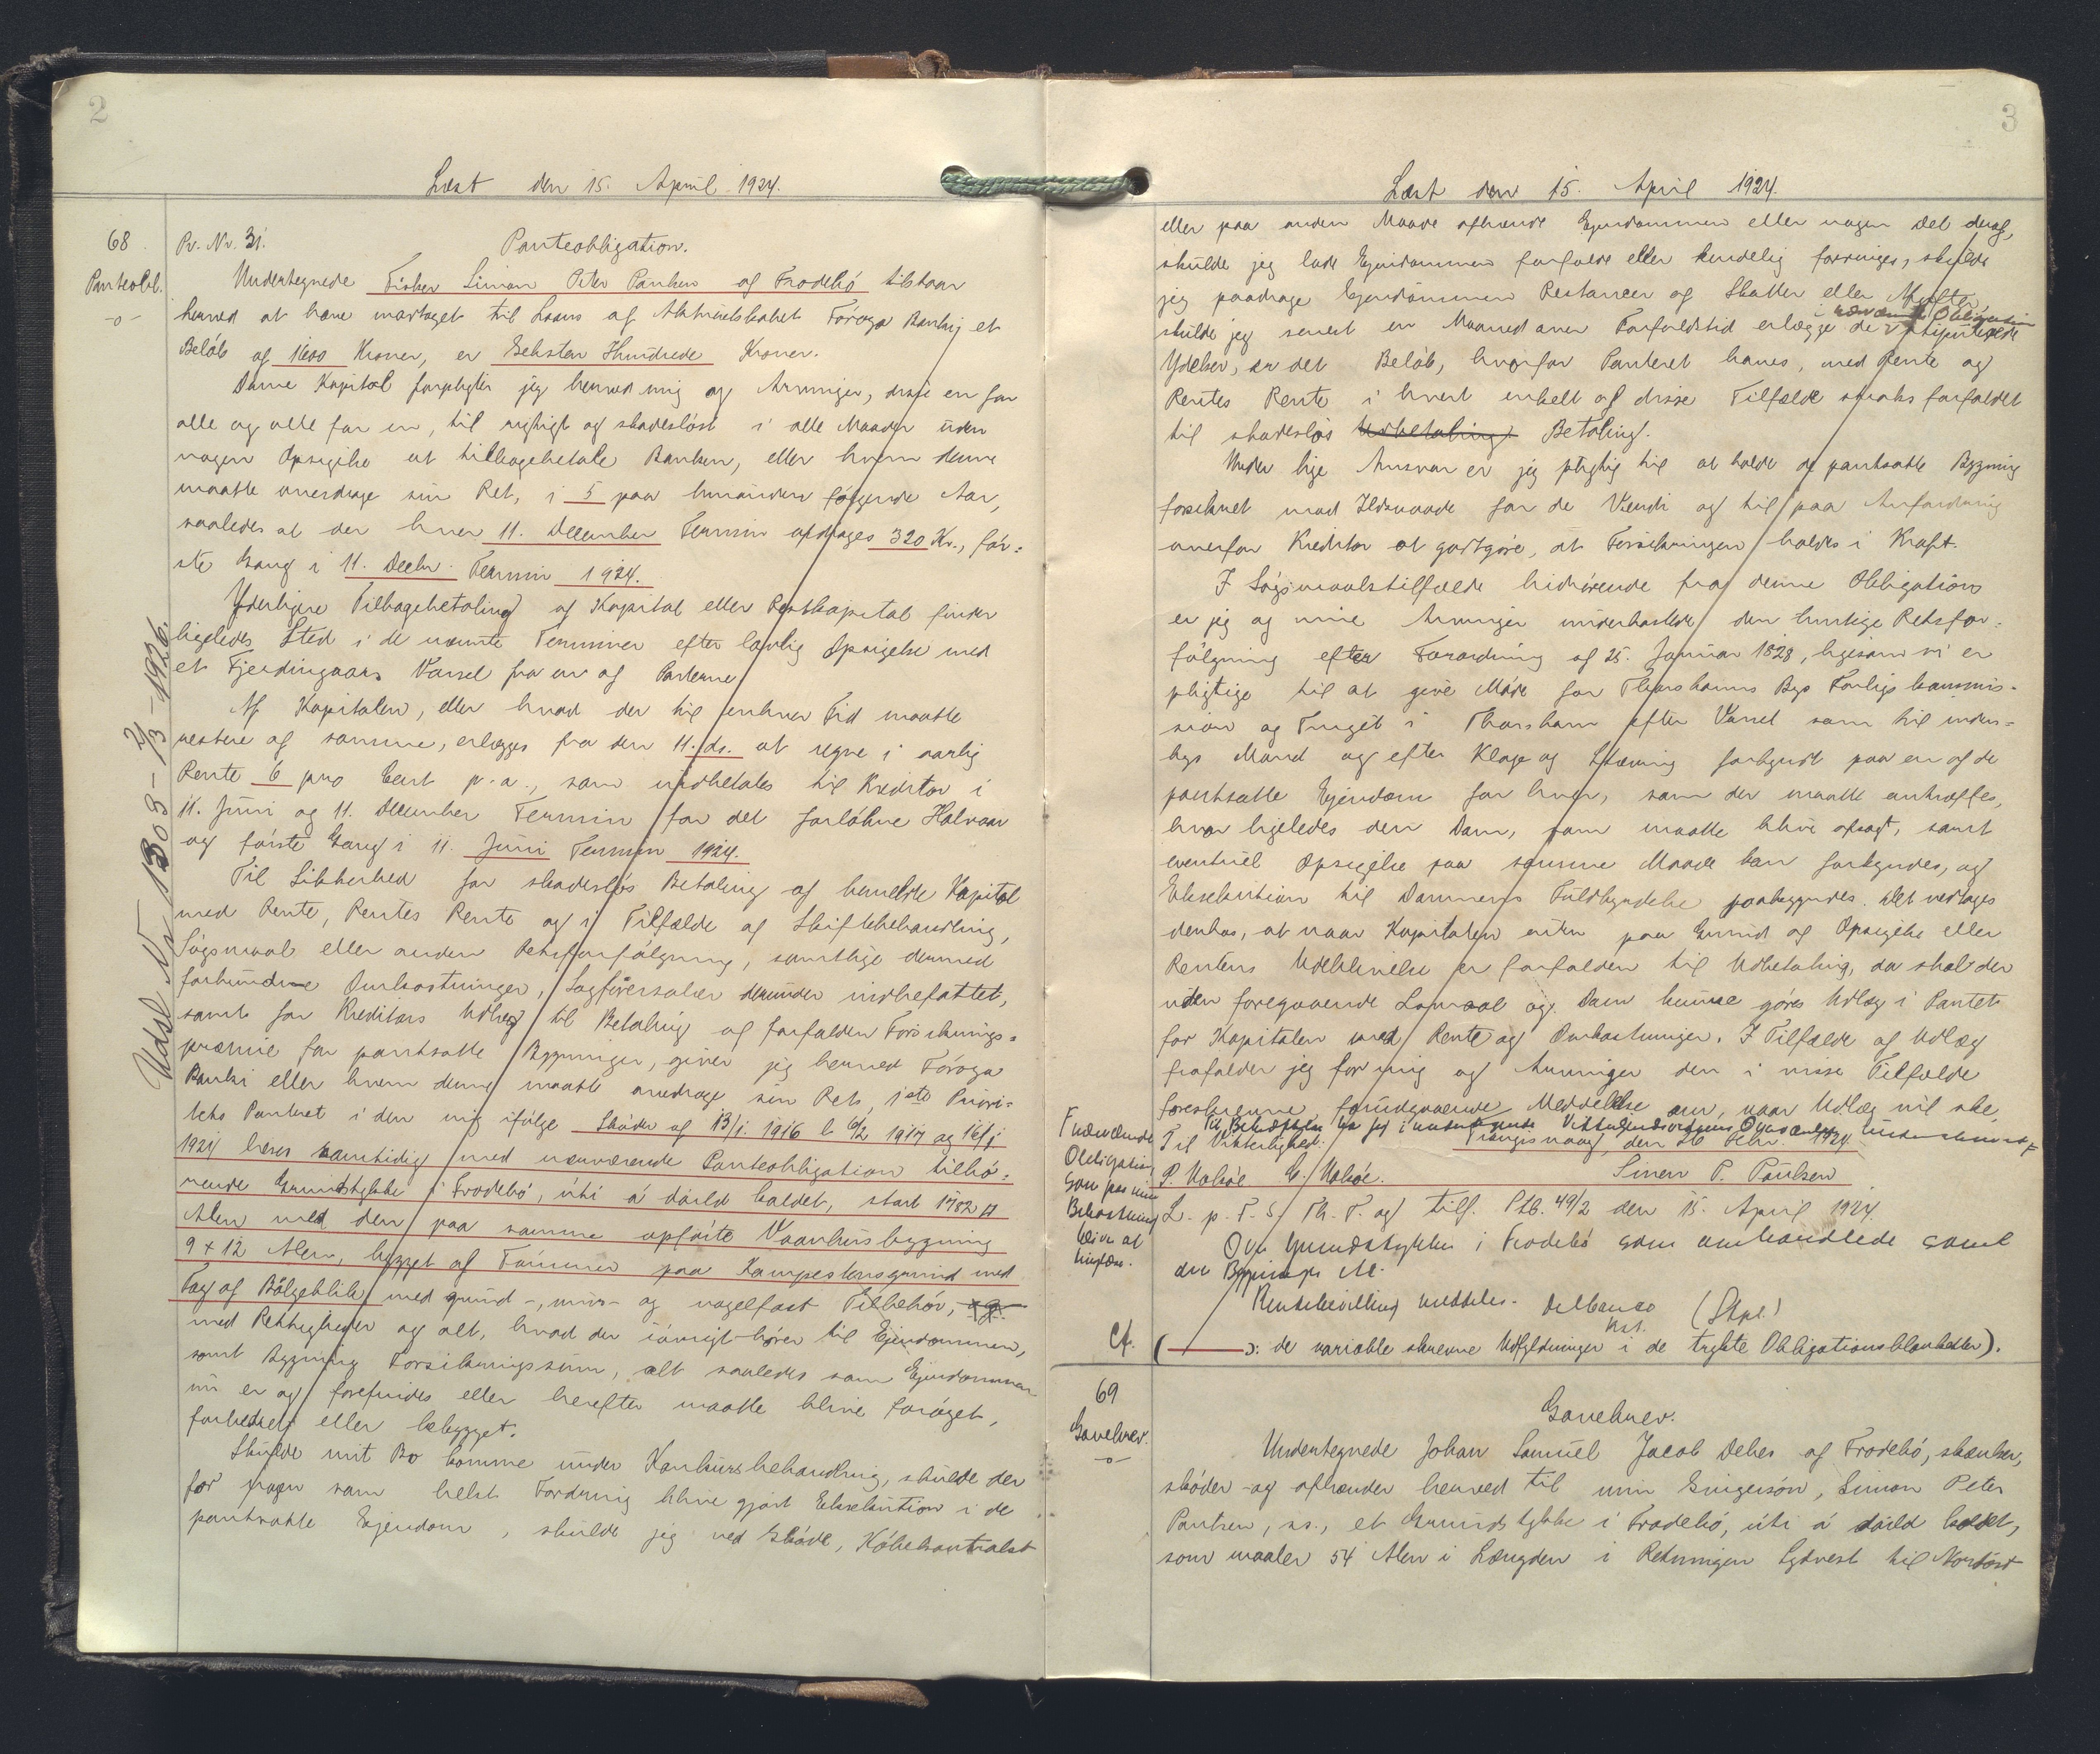 2
Læst den 15. April 1924.
68
Panteobl.
Pr. Nr. 31.
Panteobligation.
Undertegnede Fisker Simon Peter Paulsen af Frodebö tilstaar
herved at have modtaget til Laans af Aktieselskabet Föroya Banki et
Belöb af 1600 Kroner, er Seksten Hundrede Kroner.
Denne Kapital forpligter jeg herved mig og Arvinger, disse en for
alle og alle for en, til rigtigt og skadeslöst i alle Maader uden
nogen Opsigelse at tilbagebetale Banken, eller hvem denne
maatte overdrage sin Ret, i 5 paa hinanden fölgende Aar,
saaledes at der hver 11. December Termin afdrages 320 Kr., för=
ste Gang i 11. Decbr. Termin 1924.
Yderligere Tilbagebetaling af Kapital eller Restkapital finder
ligeledes Sted i de nævnte Terminer efter lovlig Opsigelse med
et Fjerdingaars Varsel fra en af Parterne
Af Kapitalen, eller hvad der til enhver Tid maatte
restere af samme, erlægges fra den 11. ds. at regne i aarlig
Rente 6 pro Cent p. a., som indbetales til Kreditor i
11. Juni og 11. December Termin for det forlöbne Halvaar
og förste Gang i 11. Juni Termin 1924.
Til Sikkerhed for skadeslös Betaling af bemeldte Kapital
med Rente, Rentes Rente og i Tilfælde af Skiftebehandling,
Sögsmaal eller anden Retsforfölgning, samtlige dermed
forbundne Omkostninger, Sagförersalær derunder indbefattet,
samt for Kreditors Udlæg til Betaling af forfalden Forsiknings=
præmie for pantsatte Bygninger, giver jeg herved Föroya
Banki eller hvem denne maatte overdrage sin Ret, 1ste Priori=
tets Panteret i den mig ifölge Sköder af 13/1. 1916 6/2 1917 og 16/1
1924 læses samtidig med nærværende Panteobligation tilhö=
rende Grundstykke i Frodebö, úti á dáild kaldet, stort 1982 □
Alen med den paa samme opförte Vaanhusbygning
9 x 12 Alen, bygget af Tömmer paa Kampestensgrund med
Tag af Bölgeblik med grund-, mur- og nagelfast Tilbehör,
med Rettigheder og alt, hvad der iövrigt hörer til Ejendommen,
samt Bygning Forsikringssum, alt saaledes som Ejendommen
nu er og forefindes eller herefter maatte blive foröget,
forbedret eller bebygget.
Skulde mit Bo komme under Konkursbehandling, skulde der
for nogen som helst Fordring blive gjort Eksekution i de
pantsatte Ejendom, skulde jeg ved Sköde, Köbekontrakt
Udsl. Nr. 1308 - 13/2 - 1926.
3
Læst den 15. April 1924.
eller paa anden Maade afhænde Ejendommen eller nogen Del deraf,
skulde jeg lade Ejendommen forfalde eller kendelig forringes, skulde
jeg paadrage Ejendommen Restancer af Skatter eller Afgifter,
i nærværende Obligation
skulde jeg senest en Maaned over Forfaldstid erlægge de stipulerede
Ydelser, er det Belöb, hvorfor Panteret haves, med Rente og
Rentes Rente i hvert enkelt af disse Tilfælde straks forfaldet
til skadeslös Udbetaling Betaling.
Under lige Ansvar er jeg pligtig til at holde de pantsatte Bygning
forsikret mod Ildsvaade for de Værdi og til paa Anfordring
overfor Kreditor at godtgöre, at Forsikringen holdes i Kraft.
I Sögsmaalstilfælde hidrörende fra denne Obligation
er jeg og mine Arvinger underkastede den hurtige Retsfor=
fölgning efter Forordning af 25. Januar 1828, ligesom vi er
pligtige til at give Möde for Thorshavns Bys Forligskommis=
sion og Tinget i Thorshavn efter Varsel som til inden=
bys Mand og efter Klage og Stævning forkyndt paa en af de
pantsatte Ejendom for hver, som der maatte antræffes,
hvor ligeledes den Dom, som maatte blive afsagt, samt
eventuel Opsigelse paa samme Maade kan forkyndes, og
Eksekution til Dommens Fuldbyrdelse paabegyndes. Det vedtages
derhos, at naar Kapitalen enten paa Grund af Opsigelse eller
Rentens Udeblivelse er forfalden til Udbetaling, da skal der
uden foregaaende Lovmaal og Dom kunne göres Udlæg i Pantet
for Kapitalen med Rente og Omkostninger. I Tilfælde af Udlæg
frafalder jeg for mig og Arvinger den i visse Tilfælde
foreskrevne forudgaaende Meddelelse om, naar Udlæg vil ske.
Til Bekræftelse har jeg i undertegnede Vitterlighedsvidners Overværelse underskrevet
nærværende
Obligation,
som paa min
Bekostning
bliver at
tinglæse.
Til Vitterlighed. Trangisvaag, den 26 Febr. 1924
P. Holsöe E. Holsöe. Simon P. Paulsen
L. p. T. S. Th. T. og tilf. Ptb. 49/2 den 15. April 1924.
Ovn Grundstykke i Frodebö som omhandlede samt
den Bygning
Rentebevilling meddeles.
kst.
(Stpl.)
Cf. (——— ɔ: de variable skrevne Udfyldninger i de trykte Obligationsblanketter).
69
Gavebrev.
Gavebrev.
Undertegnede Johan Samuel Jacob Debes af Frodebö, skænker,
sköder og afhænder herved til min Svigersön, Simon Peter
Paulsen, ss., et Grundstykke i Frodebö, úti á dáild kaldet,
som maaler 54 Alen i Længden i Retningen Sydvest til Nordöst